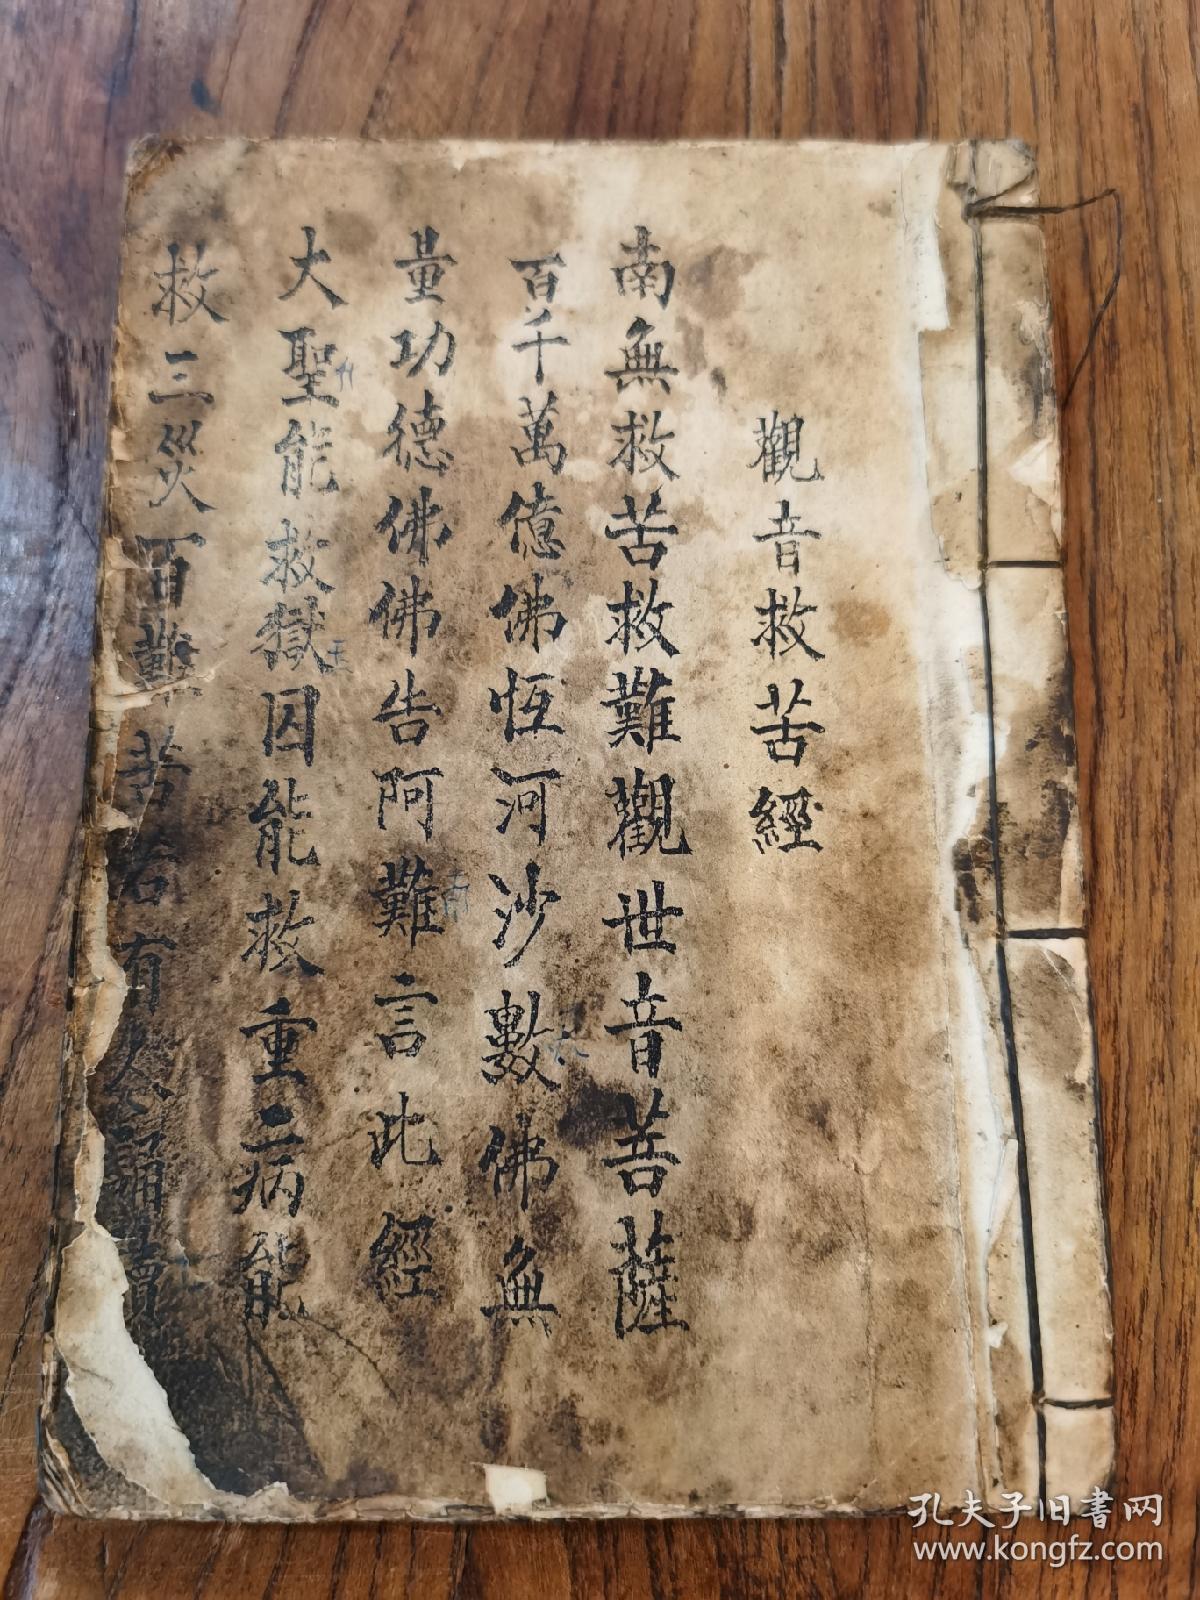 觀音救苦經
南無救苦救難觀世音菩薩
百千萬億佛恆河沙數佛無
量功德佛佛告阿難言此經
大聖能救獄囚能救重病能
救三災百難苦若有人誦讀
孔夫子旧书网
www.kongfz.com